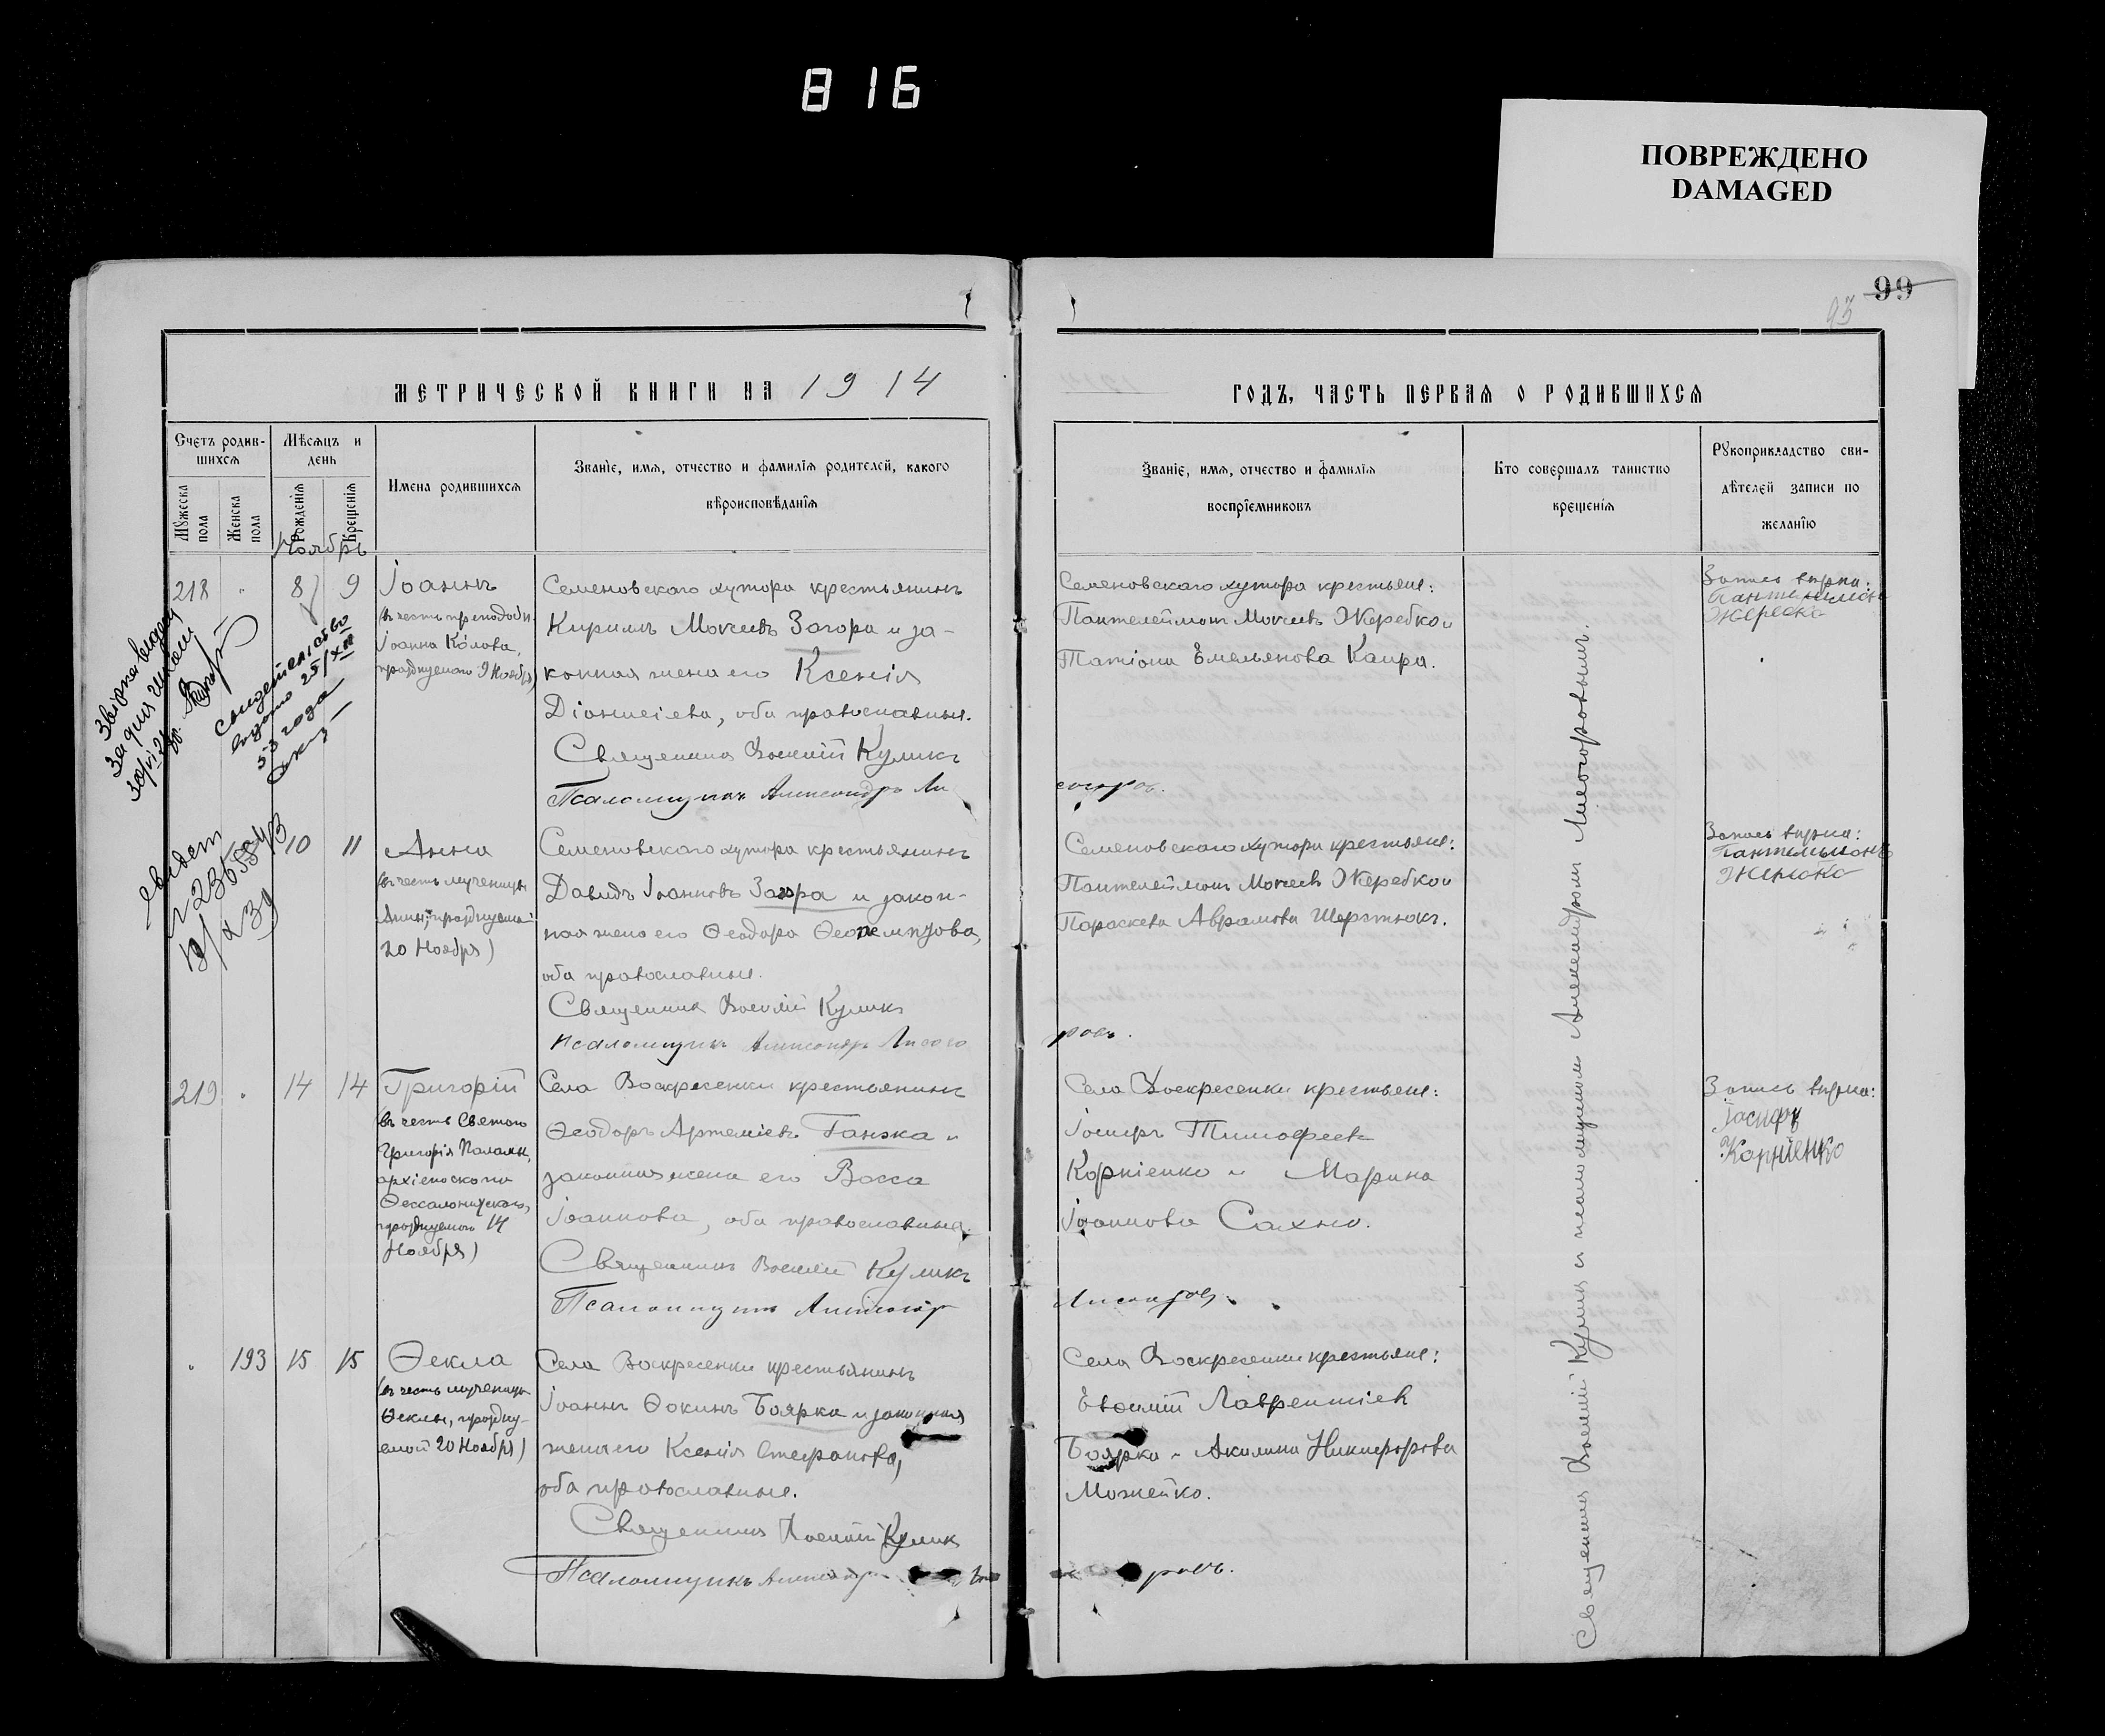 816
ПОВРЕЖДЕНО
DAMAGED
99
93
МЕТРИЧЕСКОЙ КНИГИ НА 1914
ГОДЪ, ЧАСТЬ ПЕРВАЯ О РОДИВШИХСЯ
Счетъ родив-
шихся
Мужеска пола
Женска пола
Мѣсяцъ и
день
Рожденія
Крещенія
Имена родившихся
Званіе, имя, отчество и фамилія родителей, какого
вѣроисповѣданія
Званіе, имя, отчество и фамилія
воспріемниковъ
Кто совершалъ таинство
крещенія
Рукоприкладство сви-
дѣтелей записи по
желанію
Ноябрь
218 " 8 9
Іоаннъ
(въ честь преподобн.
Іоанна Колова,
празднуемого 9 Ноября)
Семеновскаго хутора крестьянинъ
Кириллъ Моисеевъ Загора и за-
конная жена его Ксенія
Діонисіева, оба православные.
Священникъ Василій Куликъ
Псаломщикъ Александръ Ли
Семеновскаго хутора крестьяне:
Пантелеймонъ Моисеевъ Жеребко и
Татіана Емельянова Капра.
согоровъ.
Запись вѣрна:
Пантелимонъ
Жеребко
свидетельство
выдано 25/XII
53 года
свидет
10 11
Анна
(въ честь мученицы
Анны, празднуемой
20 Ноября)
Семеновскаго хутора крестьянинъ
Давидъ Іоанновъ Загора и закон-
ная жена его Ѳеодора Ѳеопемптова,
оба православные.
Священникъ Василій Куликъ
Псаломщикъ Александръ Лисого
Семеновскаго хутора крестьяне:
Пантелеймонъ Моисеевъ Жеребко и
Параскева Аврамова Шерстюкъ.
ровъ.
Запись вѣрна:
Пантелимонъ
Жеребко
219 " 14 14
Григорій
(въ честь Святаго
Григорія Паламы,
архіепископа
Ѳессалонитскаго,
празднуемого 14
Ноября)
Села Воскресенки крестьянинъ
Ѳеодоръ Артеміевъ Ганжа и
законная жена его Васса
Іоаннова, оба православные.
Священникъ Василій Куликъ
Псаломщикъ Александръ
Села Воскресенки крестьяне:
Іосифъ Тимофеевъ
Корніенко и Марина
Іоаннова Сахно.
Лисогоровъ.
Запись вѣрна:
Іосифъ
Корніенко
" 193 15 15
Ѳекла
(въ честь мученицы
Ѳеклы, праздну-
емой 20 Ноября)
Села Воскресенки крестьянинъ
Іоаннъ Ѳокинъ Боярка и законная
жена его Ксенія Стефанова,
оба православные.
Священникъ Василій Куликъ
Псаломщикъ Александръ
Села Воскресенки крестьяне:
Евфимій Лаврентіевъ
Боярка и Акилина Никифорова
Можейко.
ровъ.
Священникъ Василій Куликъ съ псаломщикомъ Александромъ Лисогоровымъ.